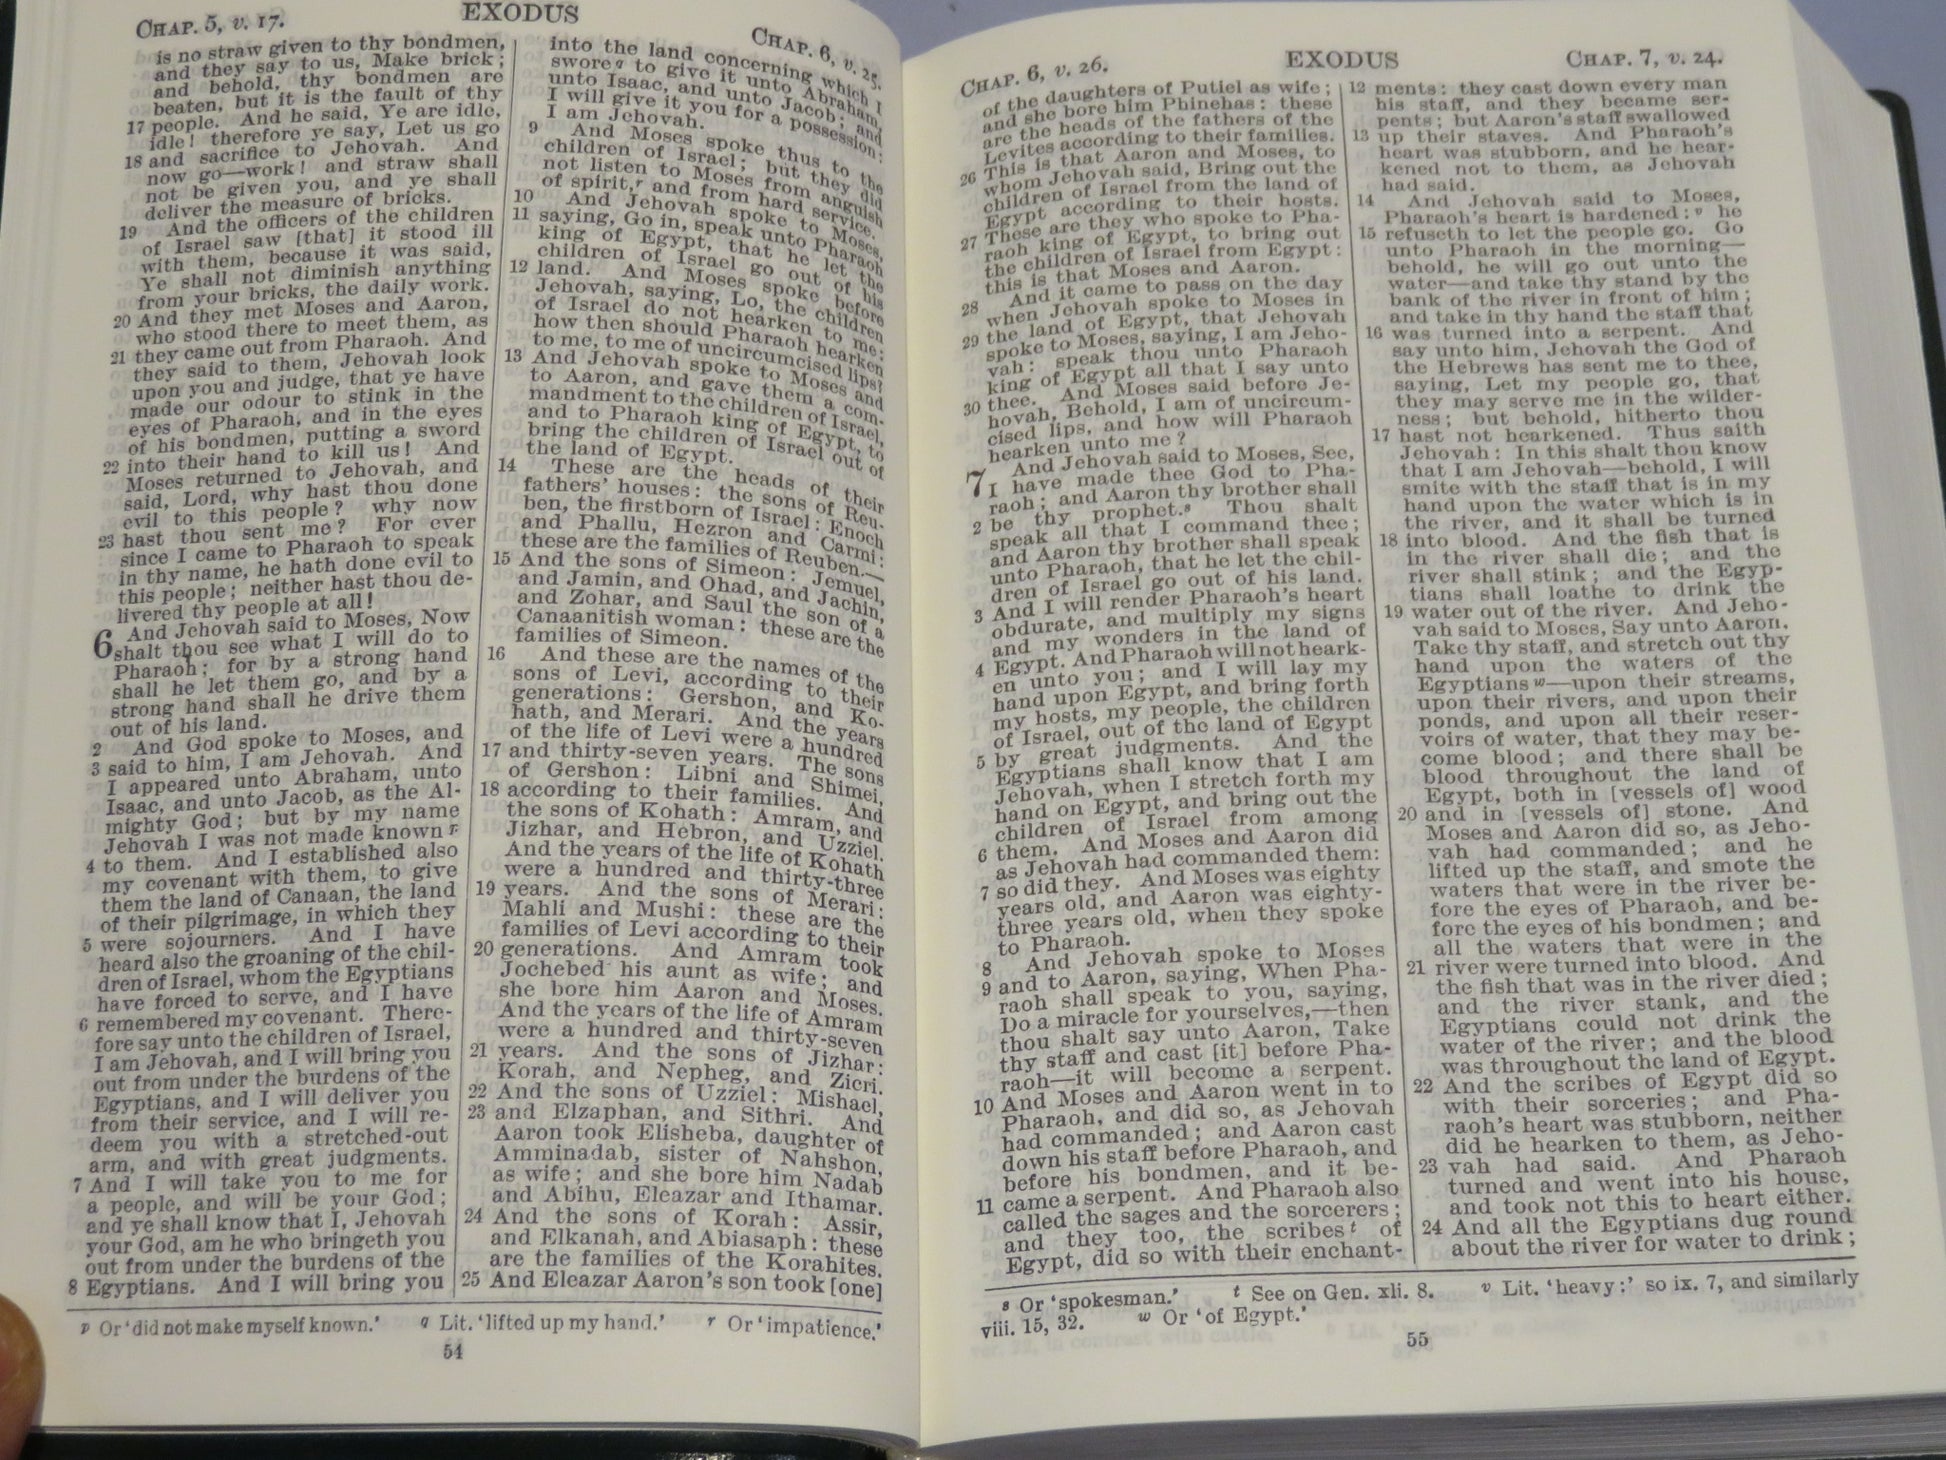 CHAP. 5, v. 17.
EXODUS
CHAP. 6, v. 25.
is no straw given to thy bondmen,
and they say to us, Make brick;
and behold, thy bondmen are
beaten, but it is the fault of thy
17 people. And he said, Ye are idle,
idle! therefore ye say, Let us go
18 and sacrifice to Jehovah. And
now go—work! and straw shall
not be given you, and ye shall
deliver the measure of bricks.
19 And the officers of the children
of Israel saw [that] it stood ill
with them, because it was said,
Ye shall not diminish anything
from your bricks, the daily work.
20 And they met Moses and Aaron,
who stood there to meet them, as
21 they came out from Pharaoh. And
they said to them, Jehovah look
upon you and judge, that ye have
made our odour to stink in the
eyes of Pharaoh, and in the eyes
of his bondmen, putting a sword
22 into their hand to kill us! And
Moses returned to Jehovah, and
said, Lord, why hast thou done
evil to this people? why now
23 hast thou sent me? For ever
since I came to Pharaoh to speak
in thy name, he hath done evil to
this people; neither hast thou de-
livered thy people at all!
6 And Jehovah said to Moses, Now
shalt thou see what I will do to
Pharaoh; for by a strong hand
shall he let them go, and by a
strong hand shall he drive them
out of his land.
2 And God spoke to Moses, and
3 said to him, I am Jehovah. And
I appeared unto Abraham, unto
Isaac, and unto Jacob, as the Al-
mighty God; but by my name
Jehovah I was not made known p
4 to them. And I established also
my covenant with them, to give
them the land of Canaan, the land
of their pilgrimage, in which they
5 were sojourners. And I have
heard also the groaning of the chil-
dren of Israel, whom the Egyptians
have forced to serve, and I have
6 remembered my covenant. There-
fore say unto the children of Israel,
I am Jehovah, and I will bring you
out from under the burdens of the
Egyptians, and I will deliver you
from their service, and I will re-
deem you with a stretched-out
arm, and with great judgments.
7 And I will take you to me for
a people, and will be your God;
and ye shall know that I, Jehovah
your God, am he who bringeth you
out from under the burdens of the
8 Egyptians. And I will bring you
into the land concerning which I
swore q to give it unto Abraham,
unto Isaac, and unto Jacob; and
I will give it you for a possession:
I am Jehovah.
9 And Moses spoke thus to the
children of Israel; but they did
not listen to Moses from anguish
of spirit, r and from hard service.
10 And Jehovah spoke to Moses,
11 saying, Go in, speak unto Pharaoh
king of Egypt, that he let the
children of Israel go out of his
12 land. And Moses spoke before
Jehovah, saying, Lo, the children
of Israel do not hearken to me;
how then should Pharaoh hearken
to me, to me of uncircumcised lips?
13 And Jehovah spoke to Moses and
to Aaron, and gave them a com-
mandment to the children of Israel,
and to Pharaoh king of Egypt, to
bring the children of Israel out of
the land of Egypt.
14 These are the heads of their
fathers' houses: the sons of Reu-
ben, the firstborn of Israel: Enoch
and Phallu, Hezron and Carmi:
these are the families of Reuben.—
15 And the sons of Simeon: Jemuel,
and Jamin, and Ohad, and Jachin,
and Zohar, and Saul the son of a
Canaanitish woman: these are the
families of Simeon.
16 And these are the names of the
sons of Levi, according to their
generations: Gershon, and Ko-
hath, and Merari. And the years
of the life of Levi were a hundred
17 and thirty-seven years. The sons
of Gershon: Libni and Shimei,
18 according to their families. And
the sons of Kohath: Amram, and
Jizhar, and Hebron, and Uzziel.
And the years of the life of Kohath
were a hundred and thirty-three
19 years. And the sons of Merari:
Mahli and Mushi: these are the
families of Levi according to their
20 generations. And Amram took
Jochebed his aunt as wife; and
she bore him Aaron and Moses.
And the years of the life of Amram
were a hundred and thirty-seven
21 years. And the sons of Jizhar:
Korah, and Nepheg, and Zicri.
22 And the sons of Uzziel: Mishael,
23 and Elzaphan, and Sithri. And
Aaron took Elisheba, daughter of
Amminadab, sister of Nahshon,
as wife; and she bore him Nadab
and Abihu, Eleazar and Ithamar.
24 And the sons of Korah: Assir,
and Elkanah, and Abiasaph: these
are the families of the Korahites.
25 And Eleazar Aaron's son took [one]
p Or 'did not make myself known.' q Lit. 'lifted up my hand.' r Or 'impatience.'
54
CHAP. 6, v. 26.
EXODUS
CHAP. 7, v. 24.
of the daughters of Putiel as wife;
and she bore him Phinehas: these
are the heads of the fathers of the
Levites according to their families.
26 This is that Aaron and Moses, to
whom Jehovah said, Bring out the
children of Israel from the land of
Egypt according to their hosts.
27 These are they who spoke to Pha-
raoh king of Egypt, to bring out
the children of Israel from Egypt:
this is that Moses and Aaron.
28 And it came to pass on the day
when Jehovah spoke to Moses in
29 the land of Egypt, that Jehovah
spoke to Moses, saying, I am Jeho-
vah: speak thou unto Pharaoh
king of Egypt all that I say unto
30 thee. And Moses said before Je-
hovah, Behold, I am of uncircum-
cised lips, and how will Pharaoh
hearken unto me?
7 And Jehovah said to Moses, See,
I have made thee God to Pha-
raoh; and Aaron thy brother shall
2 be thy prophet. s Thou shalt
speak all that I command thee;
and Aaron thy brother shall speak
unto Pharaoh, that he let the chil-
dren of Israel go out of his land.
3 And I will render Pharaoh's heart
obdurate, and multiply my signs
and my wonders in the land of
4 Egypt. And Pharaoh will not heark-
en unto you; and I will lay my
hand upon Egypt, and bring forth
my hosts, my people, the children
of Israel, out of the land of Egypt
5 by great judgments. And the
Egyptians shall know that I am
Jehovah, when I stretch forth my
hand on Egypt, and bring out the
children of Israel from among
6 them. And Moses and Aaron did
as Jehovah had commanded them:
7 so did they. And Moses was eighty
years old, and Aaron was eighty-
three years old, when they spoke
to Pharaoh.
8 And Jehovah spoke to Moses
9 and to Aaron, saying, When Pha-
raoh shall speak to you, saying,
Do a miracle for yourselves,—then
thou shalt say unto Aaron, Take
thy staff and cast [it] before Pha-
raoh—it will become a serpent.
10 And Moses and Aaron went in to
Pharaoh, and did so, as Jehovah
had commanded; and Aaron cast
down his staff before Pharaoh, and
before his bondmen, and it be-
11 came a serpent. And Pharaoh also
called the sages and the sorcerers;
and they too, the scribes t of
Egypt, did so with their enchant-
12 ments: they cast down every man
his staff, and they became ser-
pents; but Aaron's staff swallowed
13 up their staves. And Pharaoh's
heart was stubborn, and he hear-
kened not to them, as Jehovah
had said.
14 And Jehovah said to Moses,
Pharaoh's heart is hardened: v he
15 refuseth to let the people go. Go
unto Pharaoh in the morning—
behold, he will go out unto the
water—and take thy stand by the
bank of the river in front of him;
and take in thy hand the staff that
16 was turned into a serpent. And
say unto him, Jehovah the God of
the Hebrews has sent me to thee,
saying, Let my people go, that
they may serve me in the wilder-
ness; but behold, hitherto thou
17 hast not hearkened. Thus saith
Jehovah: In this shalt thou know
that I am Jehovah—behold, I will
smite with the staff that is in my
hand upon the water which is in
the river, and it shall be turned
18 into blood. And the fish that is
in the river shall die; and the
river shall stink; and the Egyp-
tians shall loathe to drink the
19 water out of the river. And Jeho-
vah said to Moses, Say unto Aaron,
Take thy staff, and stretch out thy
hand upon the waters of the
Egyptians w—upon their streams,
upon their rivers, and upon their
ponds, and upon all their reser-
voirs of water, that they may be-
come blood; and there shall be
blood throughout the land of
Egypt, both in [vessels of] wood
20 and in [vessels of] stone. And
Moses and Aaron did so, as Jeho-
vah had commanded; and he
lifted up the staff, and smote the
waters that were in the river be-
fore the eyes of Pharaoh, and be-
fore the eyes of his bondmen; and
all the waters that were in the
21 river were turned into blood. And
the fish that was in the river died;
and the river stank, and the
Egyptians could not drink the
water of the river; and the blood
was throughout the land of Egypt.
22 And the scribes of Egypt did so
with their sorceries; and Pha-
raoh's heart was stubborn, neither
did he hearken to them, as Jeho-
23 vah had said. And Pharaoh
turned and went into his house,
and took not this to heart either.
24 And all the Egyptians dug round
about the river for water to drink;
s Or 'spokesman.' t See on Gen. xli. 8. v Lit. 'heavy:' so ix. 7, and similarly
viii. 15, 32. w Or 'of Egypt.'
55